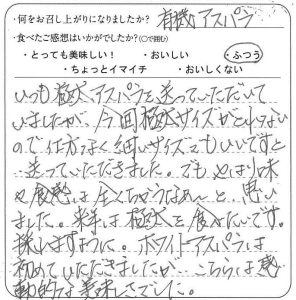 ・何をお召し上がりになりましたか? 有機アスパラ
・食べたご感想はいかがでしたか?(○で囲む)
・とっても美味しい! ・おいしい ・ふつう
・ちょっとイマイチ ・おいしくない
いつも極太アスパラを送っていただいて
いましたが、今回極太サイズがとれない
ので仕方なく細いサイズでもいいですと
送っていただきました。でもやはり味
や食感は全くちがうなぁ〜と思い
ました。来年は極太を食べたいです。
採れますように。ホワイトアスパラは
初めていただきましたが こちらは感
動的な美味しさでした。